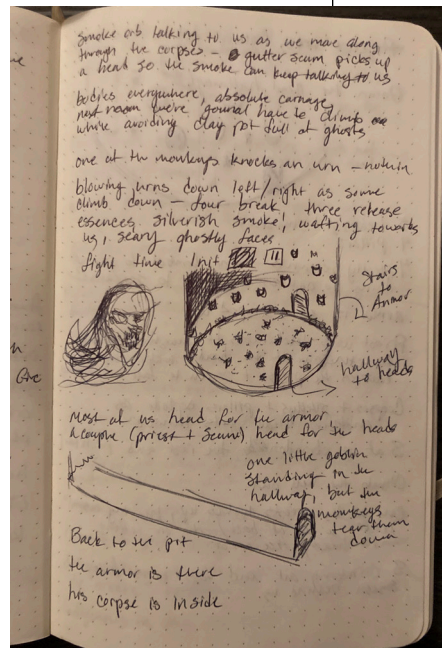 smoke orb talking to us as we move along
through the corpses - gutter scum picks up
a head so the smoke can keep talking to us
bodies everywhere, absolute carnage
next room we're gounal have to climb
while avoiding clay pot full of ghosts
one of the monkeys knocks an urn - nothin
blowing urns down left/right as some
climb down - four break, three release
essences, silverish smoke, wafting towards
us, scary ghostly faces
fight time Init 11
Stairs
to
Armor
hallway
to heads
Most of us head for the armor,
a couple (priest + scum) head for the heads
one little goblin
standing in the
hallway, but the
monkeys
tear them
down
Back to the pit
the armor is there
his corpse is inside